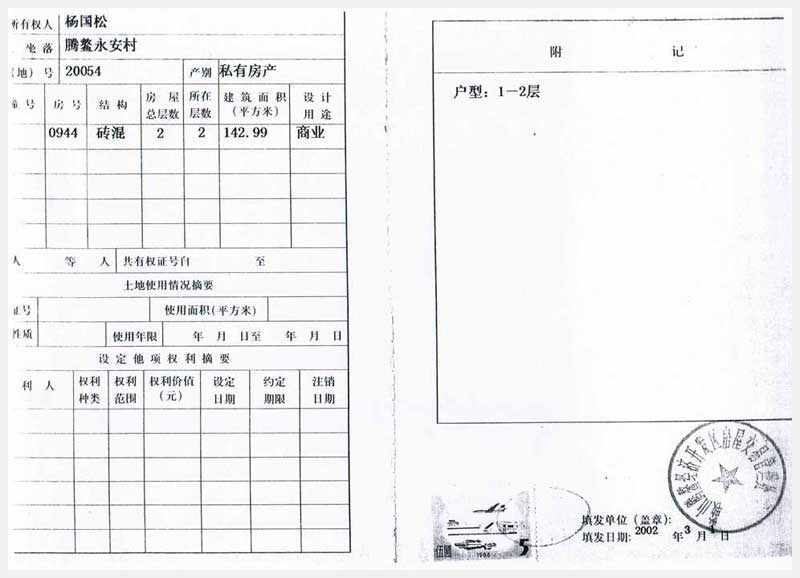 所有权人 杨国松
坐落 腾鳌永安村
(地)号 20054 产别 私有房产
幢号 房号 结构 房屋总层数 所在层数 建筑面积(平方米) 设计用途
0944 砖混 2 2 142.99 商业
人 等 人 共有权证号自 至
土地使用情况摘要
证号 使用面积(平方米)
性质 使用年限 年 月 日至 年 月 日
设定他项权利摘要
利人 权利种类 权利范围 权利价值(元) 设定日期 约定期限 注销日期
附 记
户型：1—2层
填发单位(盖章)：
填发日期：2002 年 3 月 1 日
伍圆 1988 5